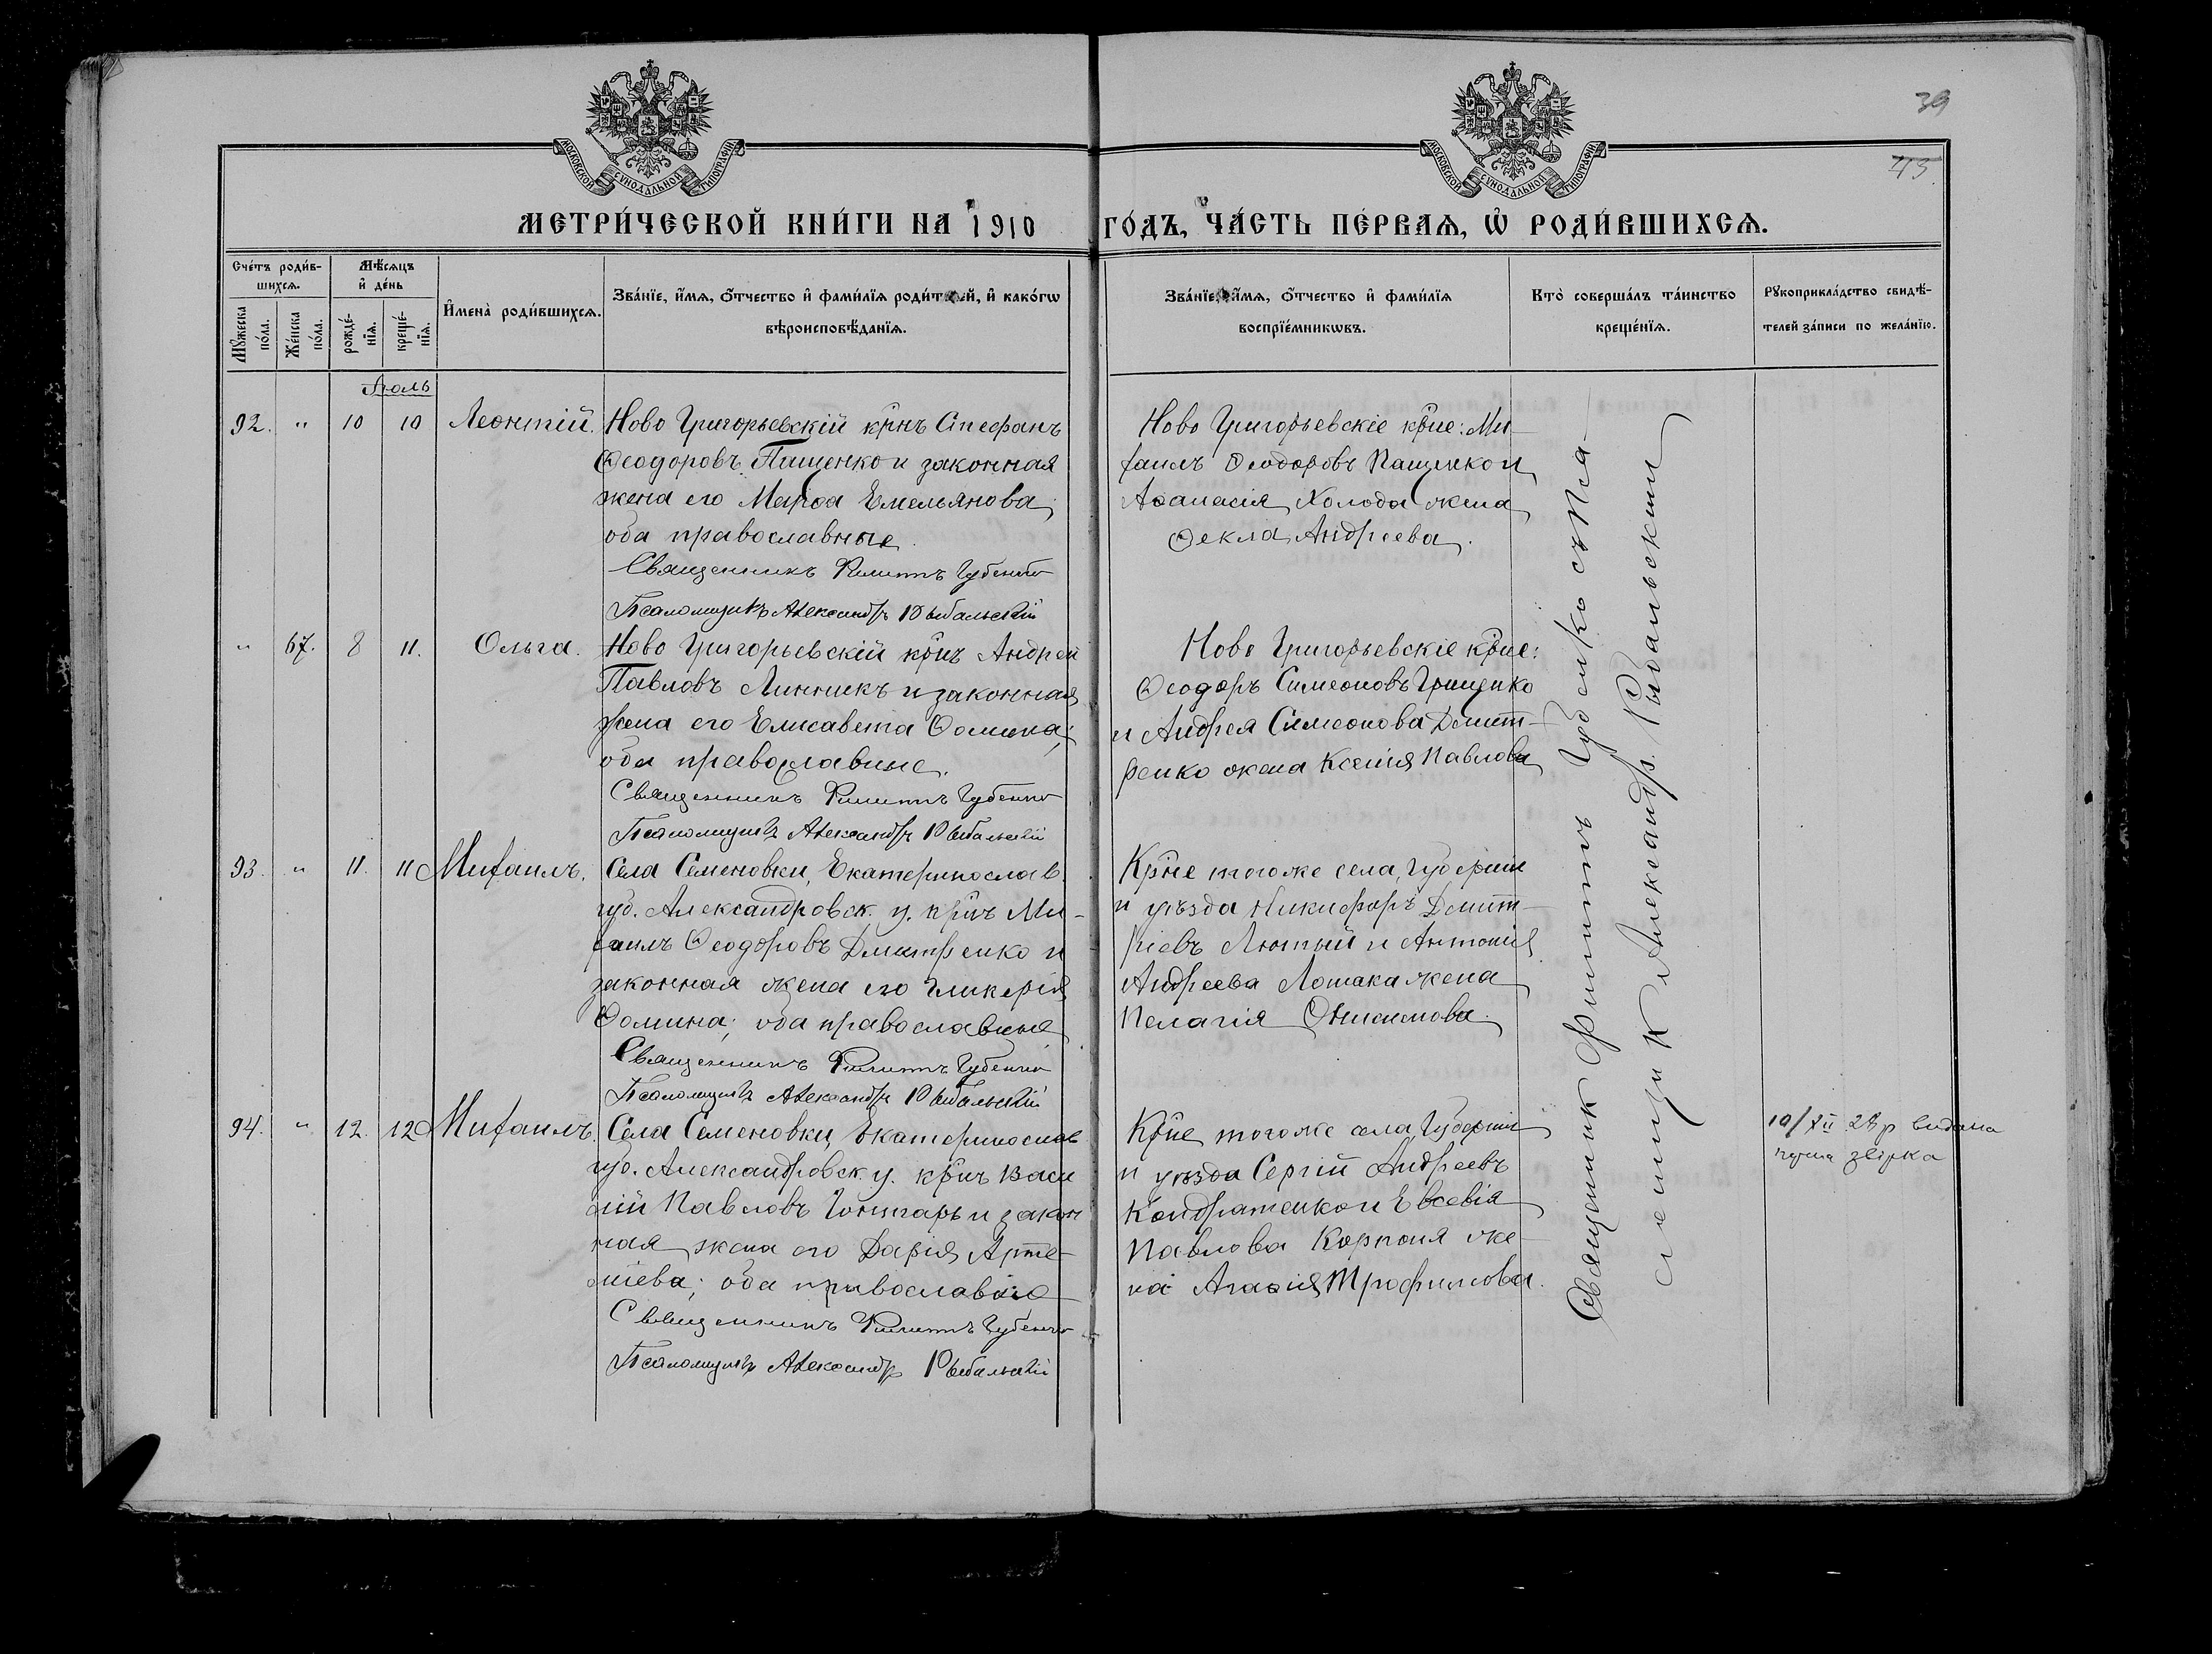 39
43
МОСКОВСКОЙ СѴНОДАЛЬНОЙ ТИПОГРАФІИ
МОСКОВСКОЙ СѴНОДАЛЬНОЙ ТИПОГРАФІИ
МЕТРИ́ЧЕСКОЙ КНИ́ГИ НА 1910 ГО́ДЪ, ЧА́СТЬ ПЕ́РВАѦ, Ѡ҆ РОДИ́ВШИХСѦ.
Сче́тъ роди́в-
шихсѧ.
Мꙋ́жеска по́ла.
Же́нска по́ла.
Мѣ́сѧцъ
и҆ де́нь
рожде́-нїѧ.
креще́-нїѧ.
И҆мена̀ роди́вшихсѧ.
Зва́нїе, и҆́мѧ, ѻ҆́тчество и҆ фами́лїѧ роди́телей, и҆ како́гѡ
вѣроисповѣ́данїѧ.
Зва́нїе, и҆́мѧ, ѻ҆́тчество и҆ фами́лїѧ
воспрїе́мникѡвъ.
Кто̀ соверша́лъ та́инство
креще́нїѧ.
Рꙋкоприкла́дство свидѣ́-
телей за́писи по жела́нїю.
Іюль
92. " 10 10 Леонтій. Ново Григорьевскій крнъ Стефанъ
Ѳеодоровъ Пащенко и законная
жена его Марѳа Емельянова;
оба православные.
Священникъ Филиппъ Губенко
Псаломщикъ Александръ Рыбальскій
Ново Григорьевскіе крне: Ми-
хаилъ Ѳеодоровъ Пащенко и
Аѳанасія Холода жена
Ѳекла Андреева.
" 67. 8 11. Ольга. Ново Григорьевскій крнъ Андрей
Павловъ Линникъ и законная
жена его Елисавета Ѳомина;
оба православные.
Священникъ Филиппъ Губенко
Псаломщикъ Александръ Рыбальскій
Ново Григорьевскіе крне:
Ѳеодоръ Симеоновъ Грищенко
и Андрея Симеонова Дмит-
ренко жена Ксенія Павлова
93. " 11. 11 Михаилъ. Села Семеновки, Екатеринослав.
губ. Александровск. у. крнъ Ми-
хаилъ Ѳеодоровъ Дмитренко и
законная жена его Гликерія
Ѳомина; оба православные
Священникъ Филиппъ Губенко
Псаломщикъ Александръ Рыбальскій
Крне тогоже села, Губерніи
и уѣзда Никифоръ Дмит-
ріевъ Лютый и Антонія
Андреева Лошака жена
Пелагія Онисимова.
94. " 12. 12 Михаилъ. Села Семеновки, Екатеринослав
губ. Александровск. у. крнъ Васи
лій Павловъ Гончарь и закон
ная жена его Дарія Арте-
міева; оба православные
Священникъ Филиппъ Губенко
Псаломщикъ Александр Рыбальскій
Крне тогоже села Губерніи
и уѣзда Сергій Андреевъ
Кондратенко и Евсевія
Павлова Корпаня же-
на Агаѳія Трофимова.
Священник Филиппъ Губенко съ Пса-
ломщик Александр. Рыбальскіи
10/XII 28 р видана
звірка